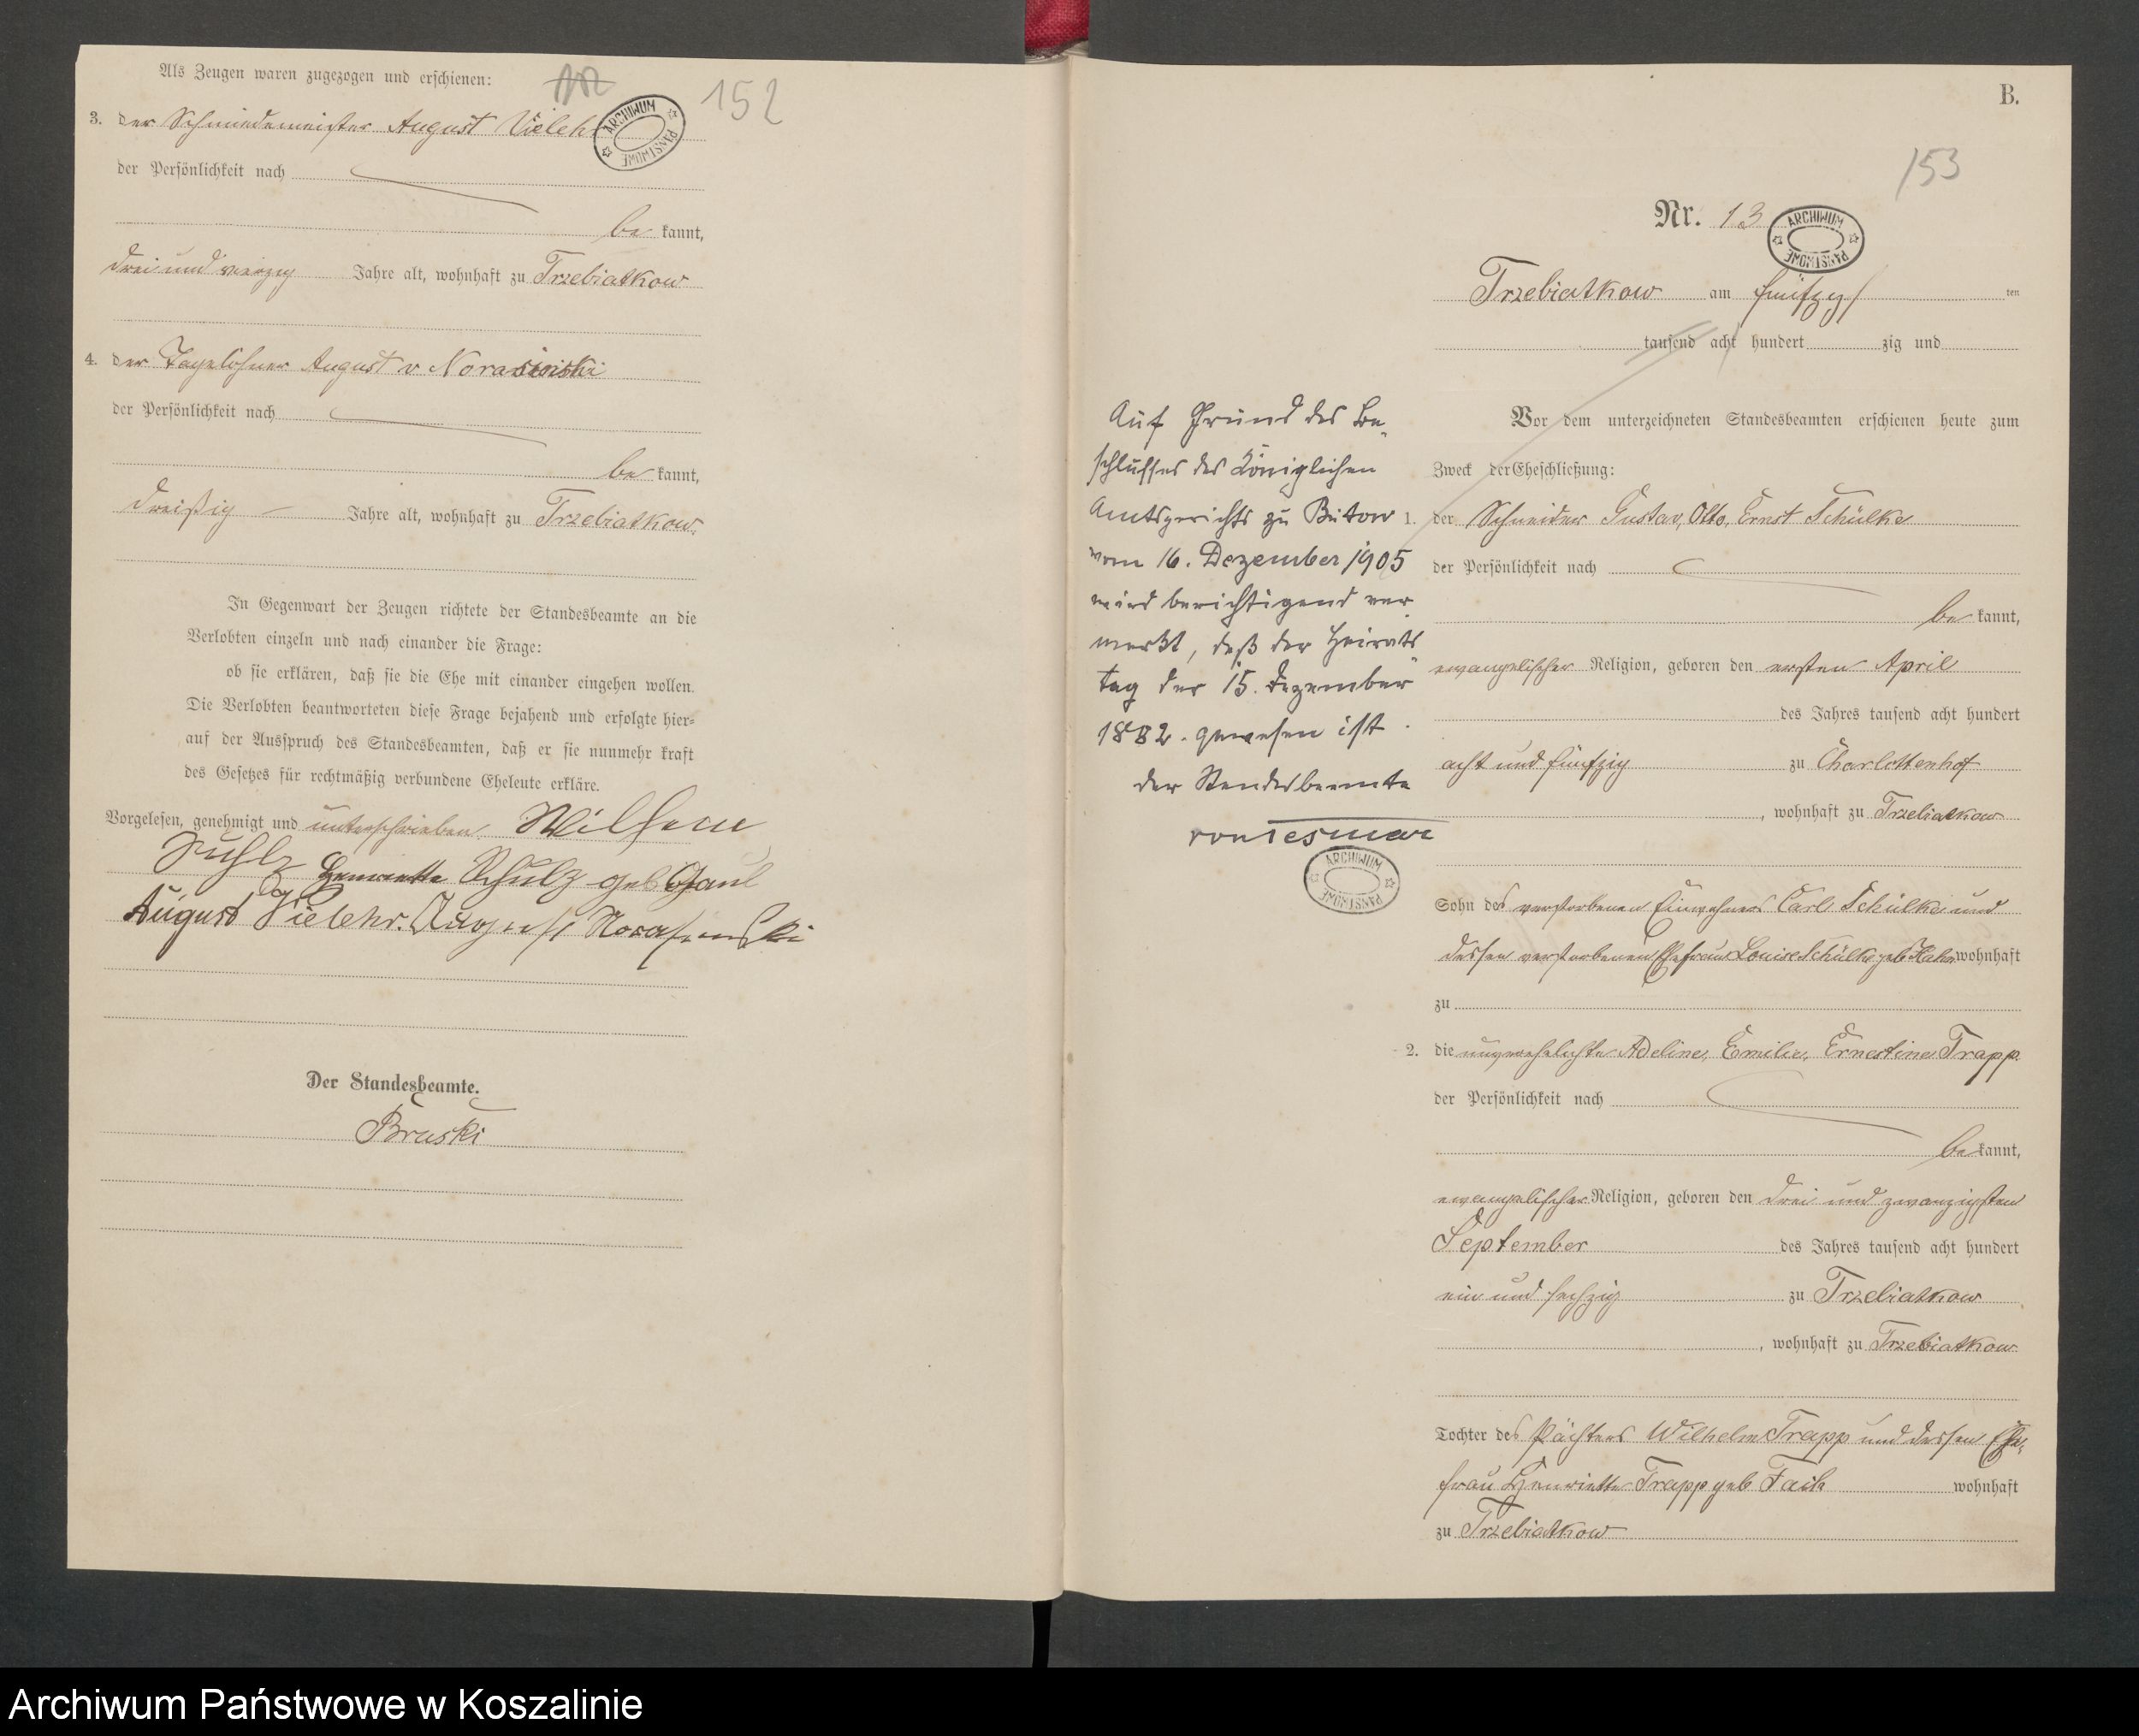 Als Zeugen waren zugezogen und erschienen:
152
3. der Schmiedemeister August Vielehr
ARCHIWUM PAŃSTWOWE
der Persönlichkeit nach
be kannt,
drei und vierzig Jahre alt, wohnhaft zu Trzebiatkow
4. der Tagelöhner August v
der Persönlichkeit nach
be kannt,
dreißig Jahre alt, wohnhaft zu Trzebiatkow.
In Gegenwart der Zeugen richtete der Standesbeamte an die
Verlobten einzeln und nach einander die Frage:
ob sie erklären, daß sie die Ehe mit einander eingehen wollen.
Die Verlobten beantworteten diese Frage bejahend und erfolgte hier-
auf der Ausspruch des Standesbeamten, daß er sie nunmehr kraft
des Gesetzes für rechtmäßig verbundene Eheleute erkläre.
Vorgelesen, genehmigt und unterschrieben.
Henriette Schulz geb Gaul
August Vielehr. August
Der Standesbeamte.
Bruski
B.
153
Nr. 13
ARCHIWUM PAŃSTWOWE
Trzebiatkow am fünfzehn ten
tausend acht hundert zig und
Vor dem unterzeichneten Standesbeamten erschienen heute zum
Zweck der Eheschließung:
1. der Schneider Gustav, Otto, Ernst Schülke
der Persönlichkeit nach
be kannt,
evangelischer Religion, geboren den ersten April
des Jahres tausend acht hundert
acht und fünfzig zu Charlottenhof
, wohnhaft zu Trzebiatkow
Sohn des verstorbenen Einwohners Carl Schülke und
dessen verstorbenen Ehefrau Louise Schülke geb Hahn wohnhaft
zu
2. die unverehelichte Adeline, Emilie, Ernestine Trapp
der Persönlichkeit nach
be kannt,
evangelischer Religion, geboren den drei und zwanzigsten
September des Jahres tausend acht hundert
ein und sechzig zu Trzebiatkow
, wohnhaft zu Trzebiatkow
Tochter des Pächters Wilhelm Trapp und dessen Ehe-
frau Henriette Trapp geb wohnhaft
zu Trzebiatkow
Auf Grund des Be-
schlusses des Königlichen
Amtsgerichts zu Bütow
vom 16. Dezember 1905
wird berichtigend ver
merkt, daß der Heirats
tag der 15. Dezember
1882. gewesen ist.
der Standesbeamte
von Tesmar
ARCHIWUM PAŃSTWOWE
Archiwum Państwowe w Koszalinie